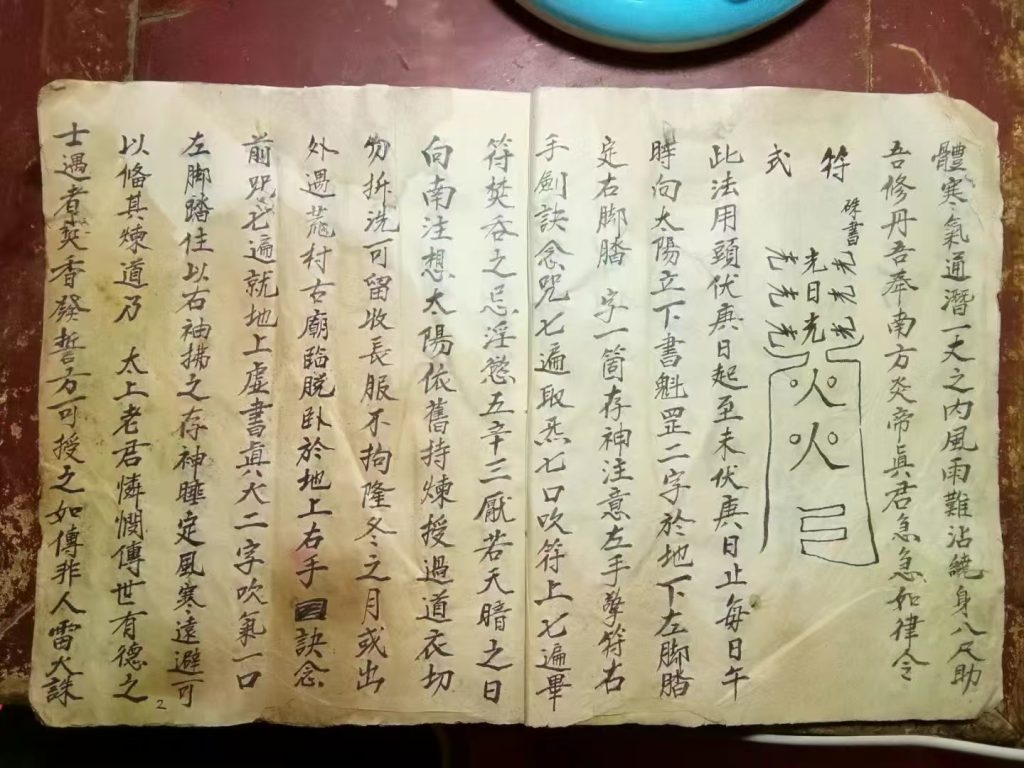 體寒氣通潛一丈之内風雨難沾繞身八尺助
吾修丹吾奉南方炎帝眞君急急如律令
符式
硃書
光光光
光日光
光光光
火
火
弓
此法用頭伏庚日起至末伏庚日止每日午
時向太陽立下書魁罡二字於地下左脚踏
定右脚踏 字一箇存神注意左手擎符右
手劍訣念咒七遍取炁七口吹符上七遍畢
符焚吞之忌淫慾五辛三厭若天暗之日
向南注想太陽依舊持煉授過道衣切
勿拆洗可留收長服不拘隆冬之月或出
外遇荒村古廟臨脱卧於地上右手 訣念
前咒七遍就地上虛書真火二字吹氣一口
左脚踏住以右袖拂之存神睡定風寒遠避可
以俻其煉道乃 太上老君憐憫傳世有德之
士遇者焚香發誓方可授之如傳非人雷火誅
2